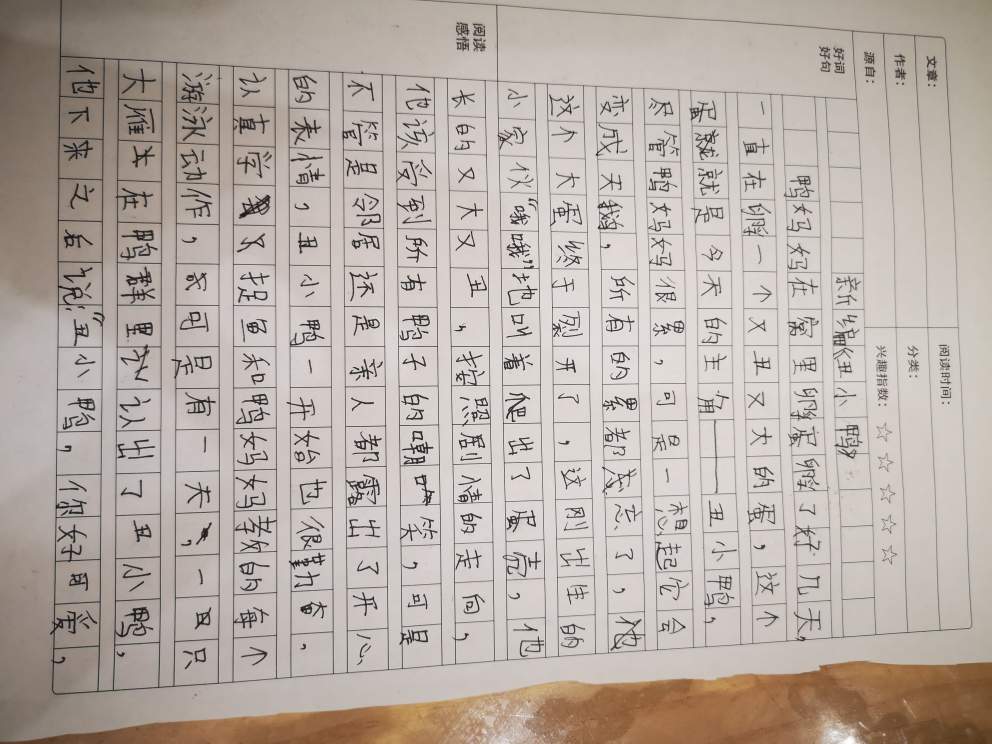 文章：
作者：
源自：
阅读时间：
分类：
兴趣指数：☆☆☆☆☆
好词
好句
新编《丑小鸭》
鸭妈妈在窝里孵蛋孵了好几天，
一直在孵一个又丑又大的蛋，这个
蛋就就是今天的主角——丑小鸭，
尽管鸭妈妈很累，可是一想起它会
变成天鹅，所有的累都忘了，他
这个大蛋终于裂开了，这刚出生的
小家伙“哦哦”地叫着爬出了蛋壳，他
长的又大又丑，按照剧情的走向，
他该受到所有鸭子的嘲笑，可是
不管是邻居还是亲人都露出了开心
的表情，丑小鸭一开始也很勤奋，
认真学习捉鱼和鸭妈妈教的每个
游泳动作，可是有一天，一只
大雁在鸭群里认出了丑小鸭，
他下来之后说：“丑小鸭，你好可爱，
阅读
感悟